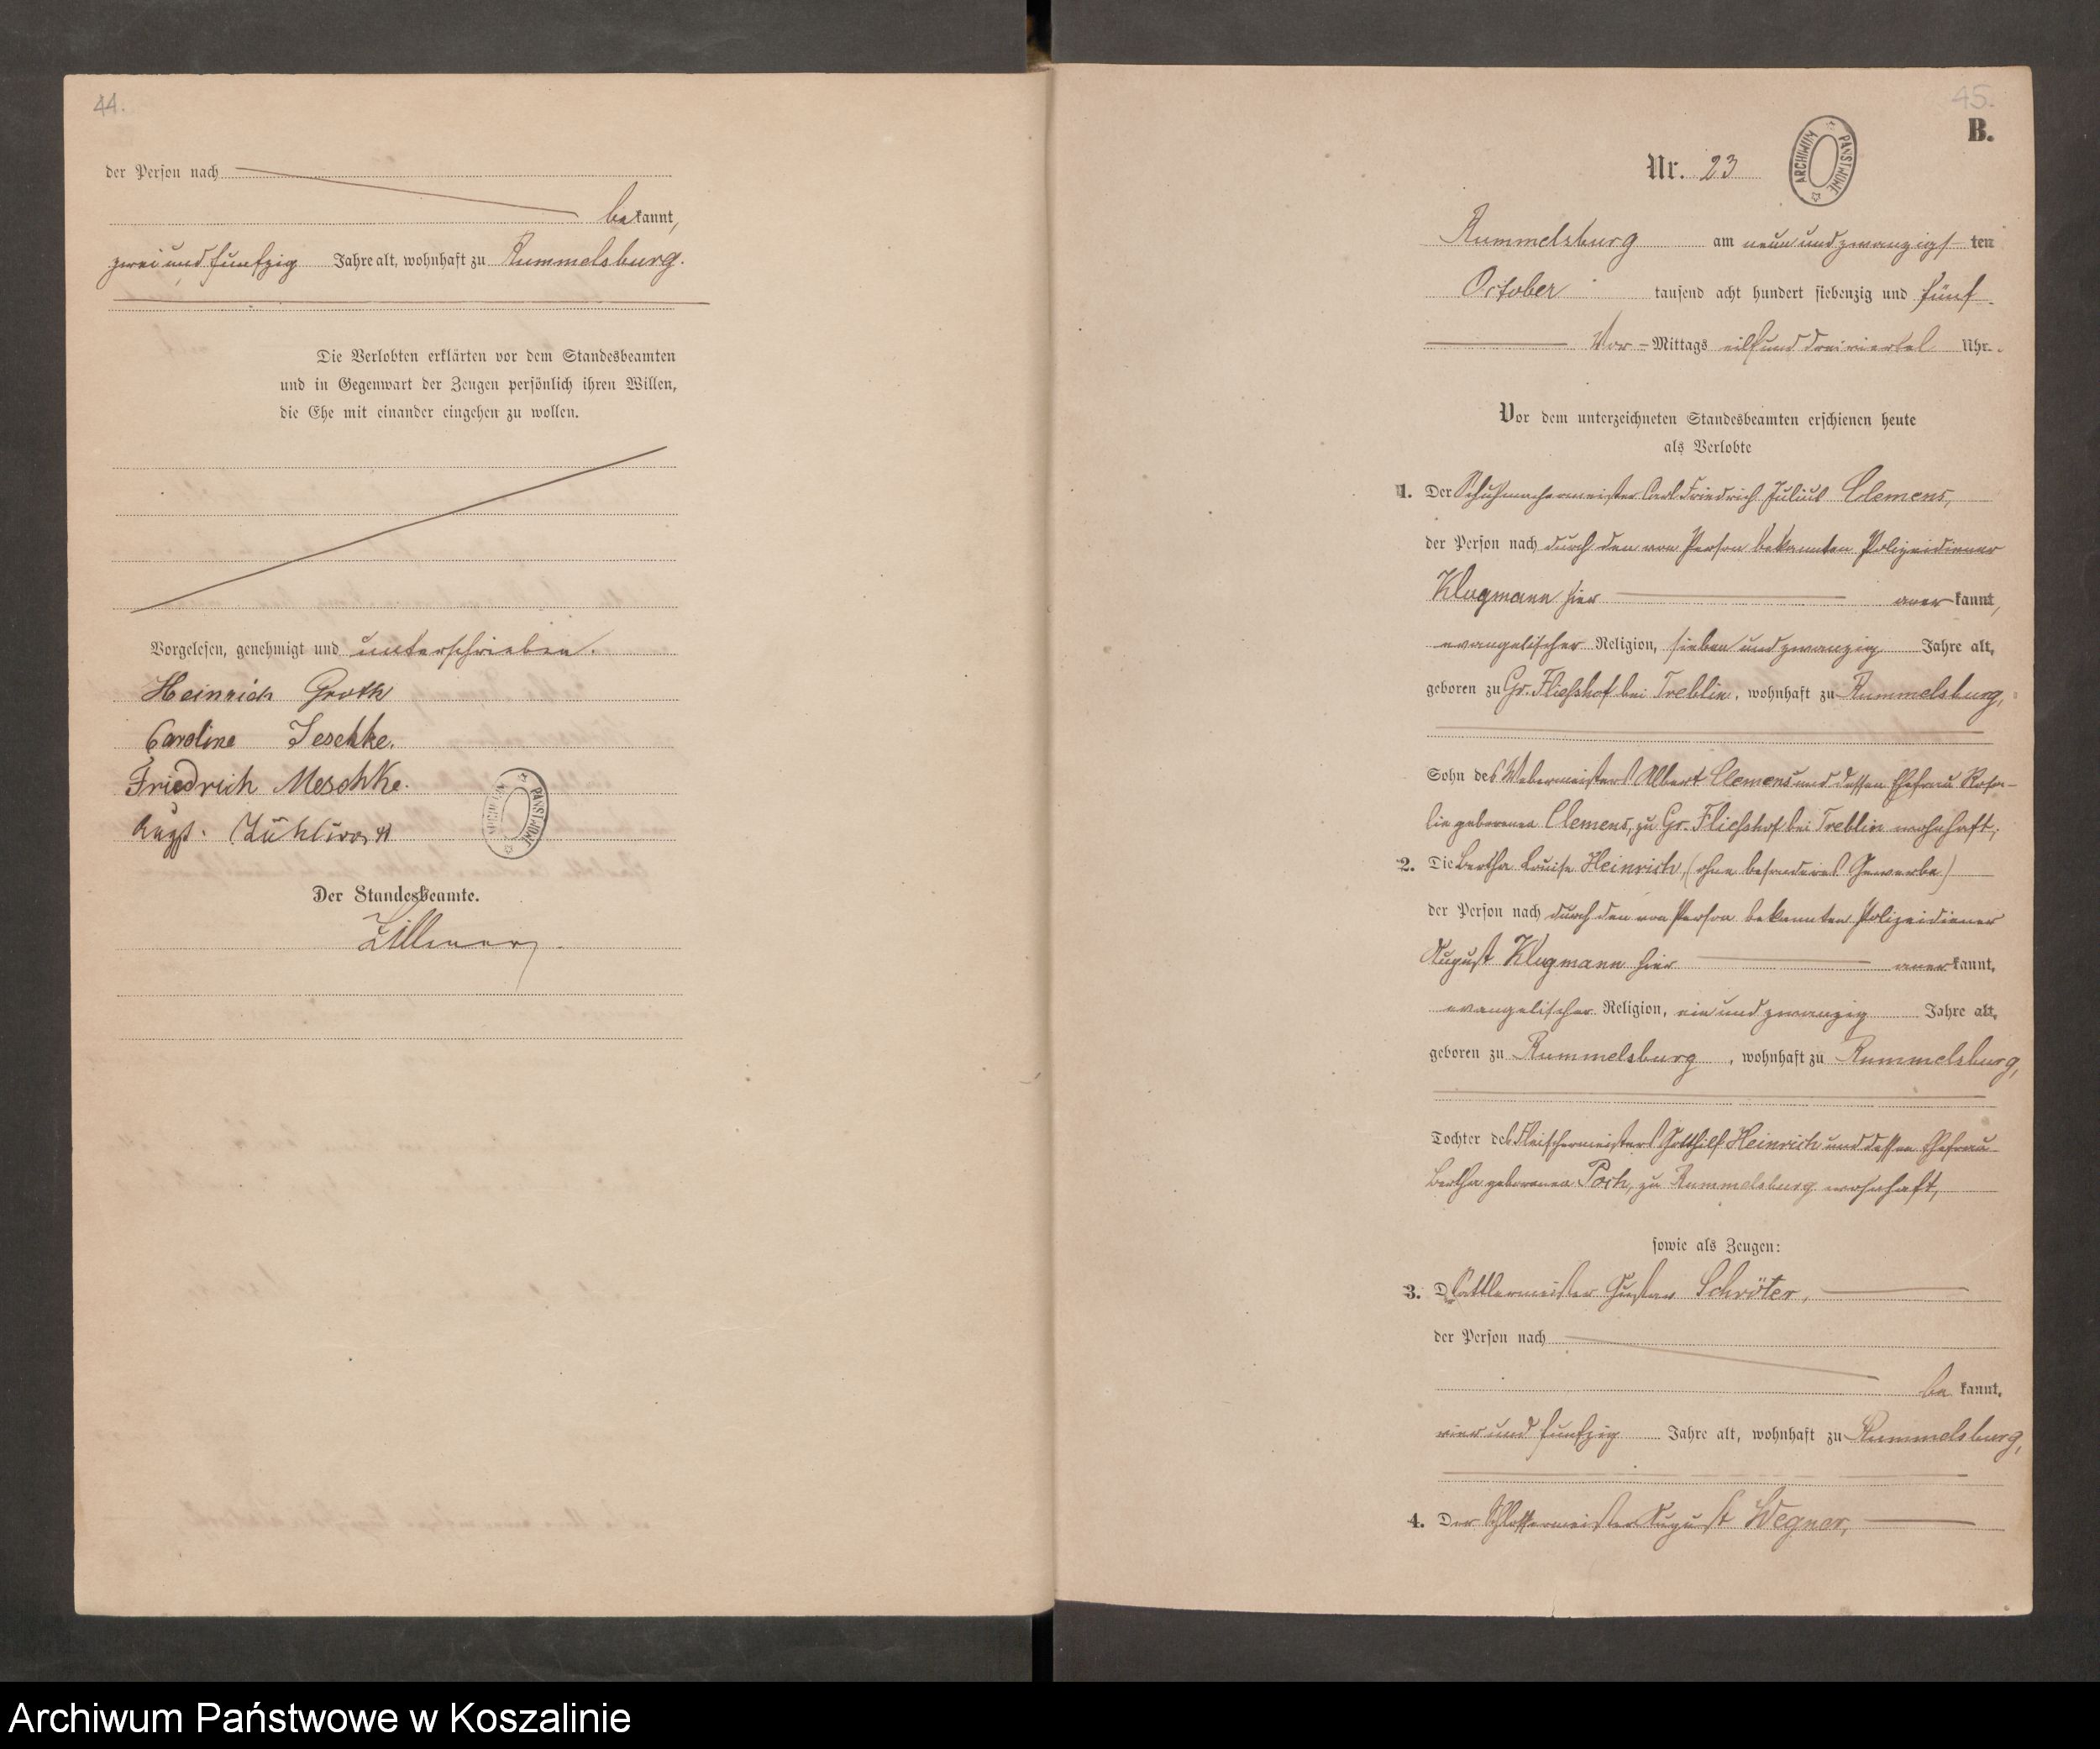 44.
der Person nach
bekannt,
zwei und funfzig Jahre alt, wohnhaft zu Rummelsburg.
Die Verlobten erklärten vor dem Standesbeamten
und in Gegenwart der Zeugen persönlich ihren Willen,
die Ehe mit einander eingehen zu wollen.
Vorgelesen, genehmigt und unterschrieben.
Heinrich Groth
Caroline Jeschke.
Friedrich Meschke.
Augst.
ARCHIWUM PAŃSTWOWE
Der Standesbeamte.
Zillmer
45.
B.
Nr. 23
ARCHIWUM PAŃSTWOWE
Rummelsburg am neun und zwanzigsten
October tausend acht hundert siebenzig und fünf
Vor-Mittags eilf und dreiviertel Uhr.
Vor dem unterzeichneten Standesbeamten erschienen heute
als Verlobte
1. Der Schuhmachermeister Carl Friedrich Julius Clemens,
der Person nach durch den von Person bekannten Polizeidiener
Klugmann hier anerkannt,
evangelischer Religion, sieben und zwanzig Jahre alt,
geboren zu Gr. Fließhof bei Treblin, wohnhaft zu Rummelsburg,
Sohn des Webermeisters Albert Clemens und dessen Ehefrau Rosa-
lie geborenen Clemens, zu Gr. Fließhof bei Treblin wohnhaft;
2. Die Bertha Louise Heinrich, (ohne besonderes Gewerbe)
der Person nach durch den von Person bekannten Polizeidiener
August Klugmann hier anerkannt,
evangelischer Religion, ein und zwanzig Jahre alt,
geboren zu Rummelsburg, wohnhaft zu Rummelsburg,
Tochter des Fleischermeisters Gotthilf Heinrich und dessen Ehefrau
Bertha geborenen Poch, zu Rummelsburg wohnhaft,
sowie als Zeugen:
3. Der Sattlermeister Gustav Schröter,
der Person nach
be kannt,
vier und funfzig Jahre alt, wohnhaft zu Rummelsburg,
4. Der Schlossermeister August Wegner,
Archiwum Państwowe w Koszalinie